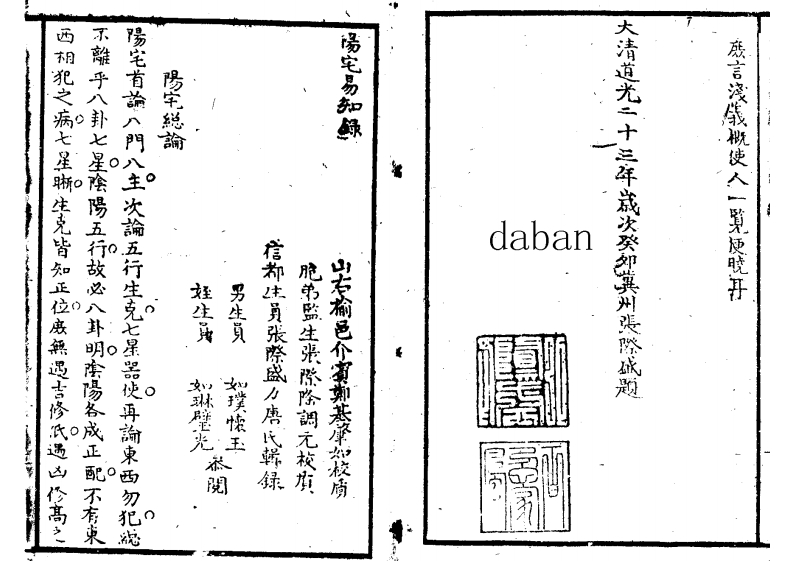 庶言淺義概使人一覽便曉耳
大清道光二十三年歲次癸卯冀州張際盛題
daban
陽宅易知錄
山右榆邑介賓鄭基肇如校質
胞弟監生張際隆調元校質
信都生員張際盛力唐氏輯錄
男生員 如璞懷玉
姪生員 如琳璧光
恭閱
陽宅總論
陽宅首論八門八主次論五行生克七星器使再論東西勿犯總
不離乎八卦七星陰陽五行故必八卦明陰陽各成正配不有東
西相犯之病七星晰生克皆知正位庶無遇吉修低遇凶修高之